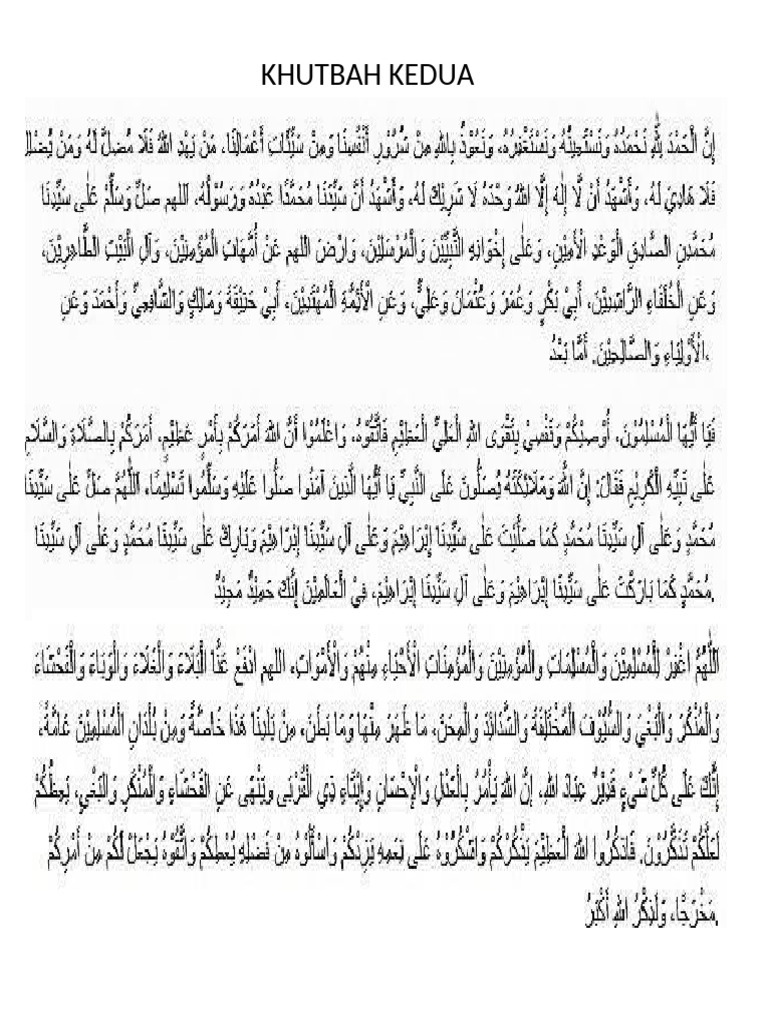 KHUTBAH KEDUA
إِنَّ الْحَمْدَ لِلّٰهِ نَحْمَدُهُ وَنَسْتَعِيْنُهُ وَنَسْتَغْفِرُهُ، وَنَعُوْذُ بِاللهِ مِنْ شُرُوْرِ أَنْفُسِنَا وَمِنْ سَيِّئَاتِ أَعْمَالِنَا، مَنْ يَهْدِ اللهُ فَلَا مُضِلَّ لَهُ وَمَنْ يُضْلِلْ
فَلَا هَادِيَ لَهُ، وَأَشْهَدُ أَنْ لَّا إِلٰهَ إِلَّا اللهُ وَحْدَهُ لَا شَرِيْكَ لَهُ، وَأَشْهَدُ أَنَّ سَيِّدَنَا مُحَمَّدًا عَبْدُهُ وَرَسُوْلُهُ، اللهم صَلِّ وَسَلِّمْ عَلٰى سَيِّدِنَا
مُحَمَّدِنِ الصَّادِقِ الْوَعْدِ الْأَمِيْنِ، وَعَلٰى إِخْوَانِهِ النَّبِيِّيْنَ وَالْمُرْسَلِيْنَ، وَارْضَ اللهم عَنْ أُمَّهَاتِ الْمُؤْمِنِيْنَ، وَآلِ الْبَيْتِ الطَّاهِرِيْنَ،
وَعَنِ الْخُلَفَاءِ الرَّاشِدِيْنَ، أَبِيْ بَكْرٍ وَعُمَرَ وَعُثْمَانَ وَعَلِيٍّ، وَعَنِ الْأَئِمَّةِ الْمُهْتَدِيْنَ، أَبِيْ حَنِيْفَةَ وَمَالِكٍ وَالشَّافِعِيِّ وَأَحْمَدَ وَعَنِ
الْأَوْلِيَاءِ وَالصَّالِحِيْنَ. أَمَّا بَعْدُ،
فَيَا أَيُّهَا الْمُسْلِمُوْنَ، أُوْصِيْكُمْ وَنَفْسِيْ بِتَقْوَى اللهِ الْعَلِيِّ الْعَظِيْمِ فَاتَّقُوْهُ، وَاعْلَمُوْا أَنَّ اللهَ أَمَرَكُمْ بِأَمْرٍ عَظِيْمٍ، أَمَرَكُمْ بِالصَّلَاةِ وَالسَّلَامِ
عَلٰى نَبِيِّهِ الْكَرِيْمِ فَقَالَ: إِنَّ اللهَ وَمَلَائِكَتَهُ يُصَلُّونَ عَلَى النَّبِيِّ يَا أَيُّهَا الَّذِينَ آمَنُوا صَلُّوا عَلَيْهِ وَسَلِّمُوا تَسْلِيمًا، اَللّٰهُمَّ صَلِّ عَلٰى سَيِّدِنَا
مُحَمَّدٍ وَعَلٰى آلِ سَيِّدِنَا مُحَمَّدٍ كَمَا صَلَّيْتَ عَلٰى سَيِّدِنَا إِبْرَاهِيْمَ وَعَلٰى آلِ سَيِّدِنَا إِبْرَاهِيْمَ وَبَارِكْ عَلٰى سَيِّدِنَا مُحَمَّدٍ وَعَلٰى آلِ سَيِّدِنَا
مُحَمَّدٍ كَمَا بَارَكْتَ عَلٰى سَيِّدِنَا إِبْرَاهِيْمَ وَعَلٰى آلِ سَيِّدِنَا إِبْرَاهِيْمَ، فِيْ الْعَالَمِيْنَ إِنَّكَ حَمِيْدٌ مَجِيْدٌ.
اَللّٰهُمَّ اغْفِرْ لِلْمُسْلِمِيْنَ وَالْمُسْلِمَاتِ والْمُؤْمِنِيْنَ وَالْمُؤْمِنَاتِ الْأَحْيَاءِ مِنْهُمْ وَالْأَمْوَاتِ، اللهم ادْفَعْ عَنَّا الْبَلَاءَ وَالْغَلَاءَ وَالْوَبَاءَ وَالْفَحْشَاءَ
وَالْمُنْكَرَ وَالْبَغْيَ وَالسُّيُوْفَ الْمُخْتَلِفَةَ وَالشَّدَائِدَ وَالْمِحَنَ، مَا ظَهَرَ مِنْهَا وَمَا بَطَنَ، مِنْ بَلَدِنَا هٰذَا خَاصَّةً وَمِنْ بُلْدَانِ الْمُسْلِمِيْنَ عَامَّةً،
إِنَّكَ عَلٰى كُلِّ شَيْءٍ قَدِيْرٌ عِبَادَ اللهِ، إنَّ اللهَ يَأْمُرُ بِالْعَدْلِ وَالْإحْسَانِ وَإِيْتَاءِ ذِي الْقُرْبَى ويَنْهَى عَنِ الفَحْشَاءِ وَالْمُنْكَرِ وَالبَغْيِ، يَعِظُكُمْ
لَعَلَّكُمْ تَذَكَّرُوْنَ. فَاذكُرُوا اللهَ الْعَظِيْمَ يَذْكُرْكُمْ وَاشْكُرُوْهُ عَلٰى نِعَمِهِ يَزِدْكُمْ وَاسْأَلُوْهُ مِنْ فَضْلِهِ يُعْطِكُمْ وَاتَّقُوْهُ يَجْعَلْ لَكُمْ مِنْ أَمْرِكُمْ
مَخْرَجًا، وَلَذِكْرُ اللهِ أَكْبَرُ.